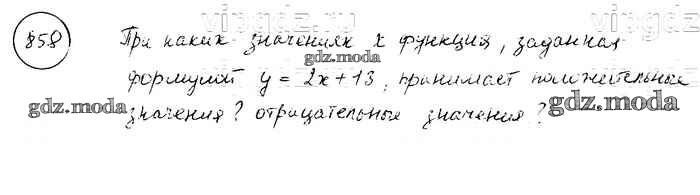 vipgdz.ru vipgdz
858 При каких значениях x функция, заданная
формулой y = 2x+13, принимает положительные
gdz.moda gdz.moda gdz.moda
значения? отрицательные значения?